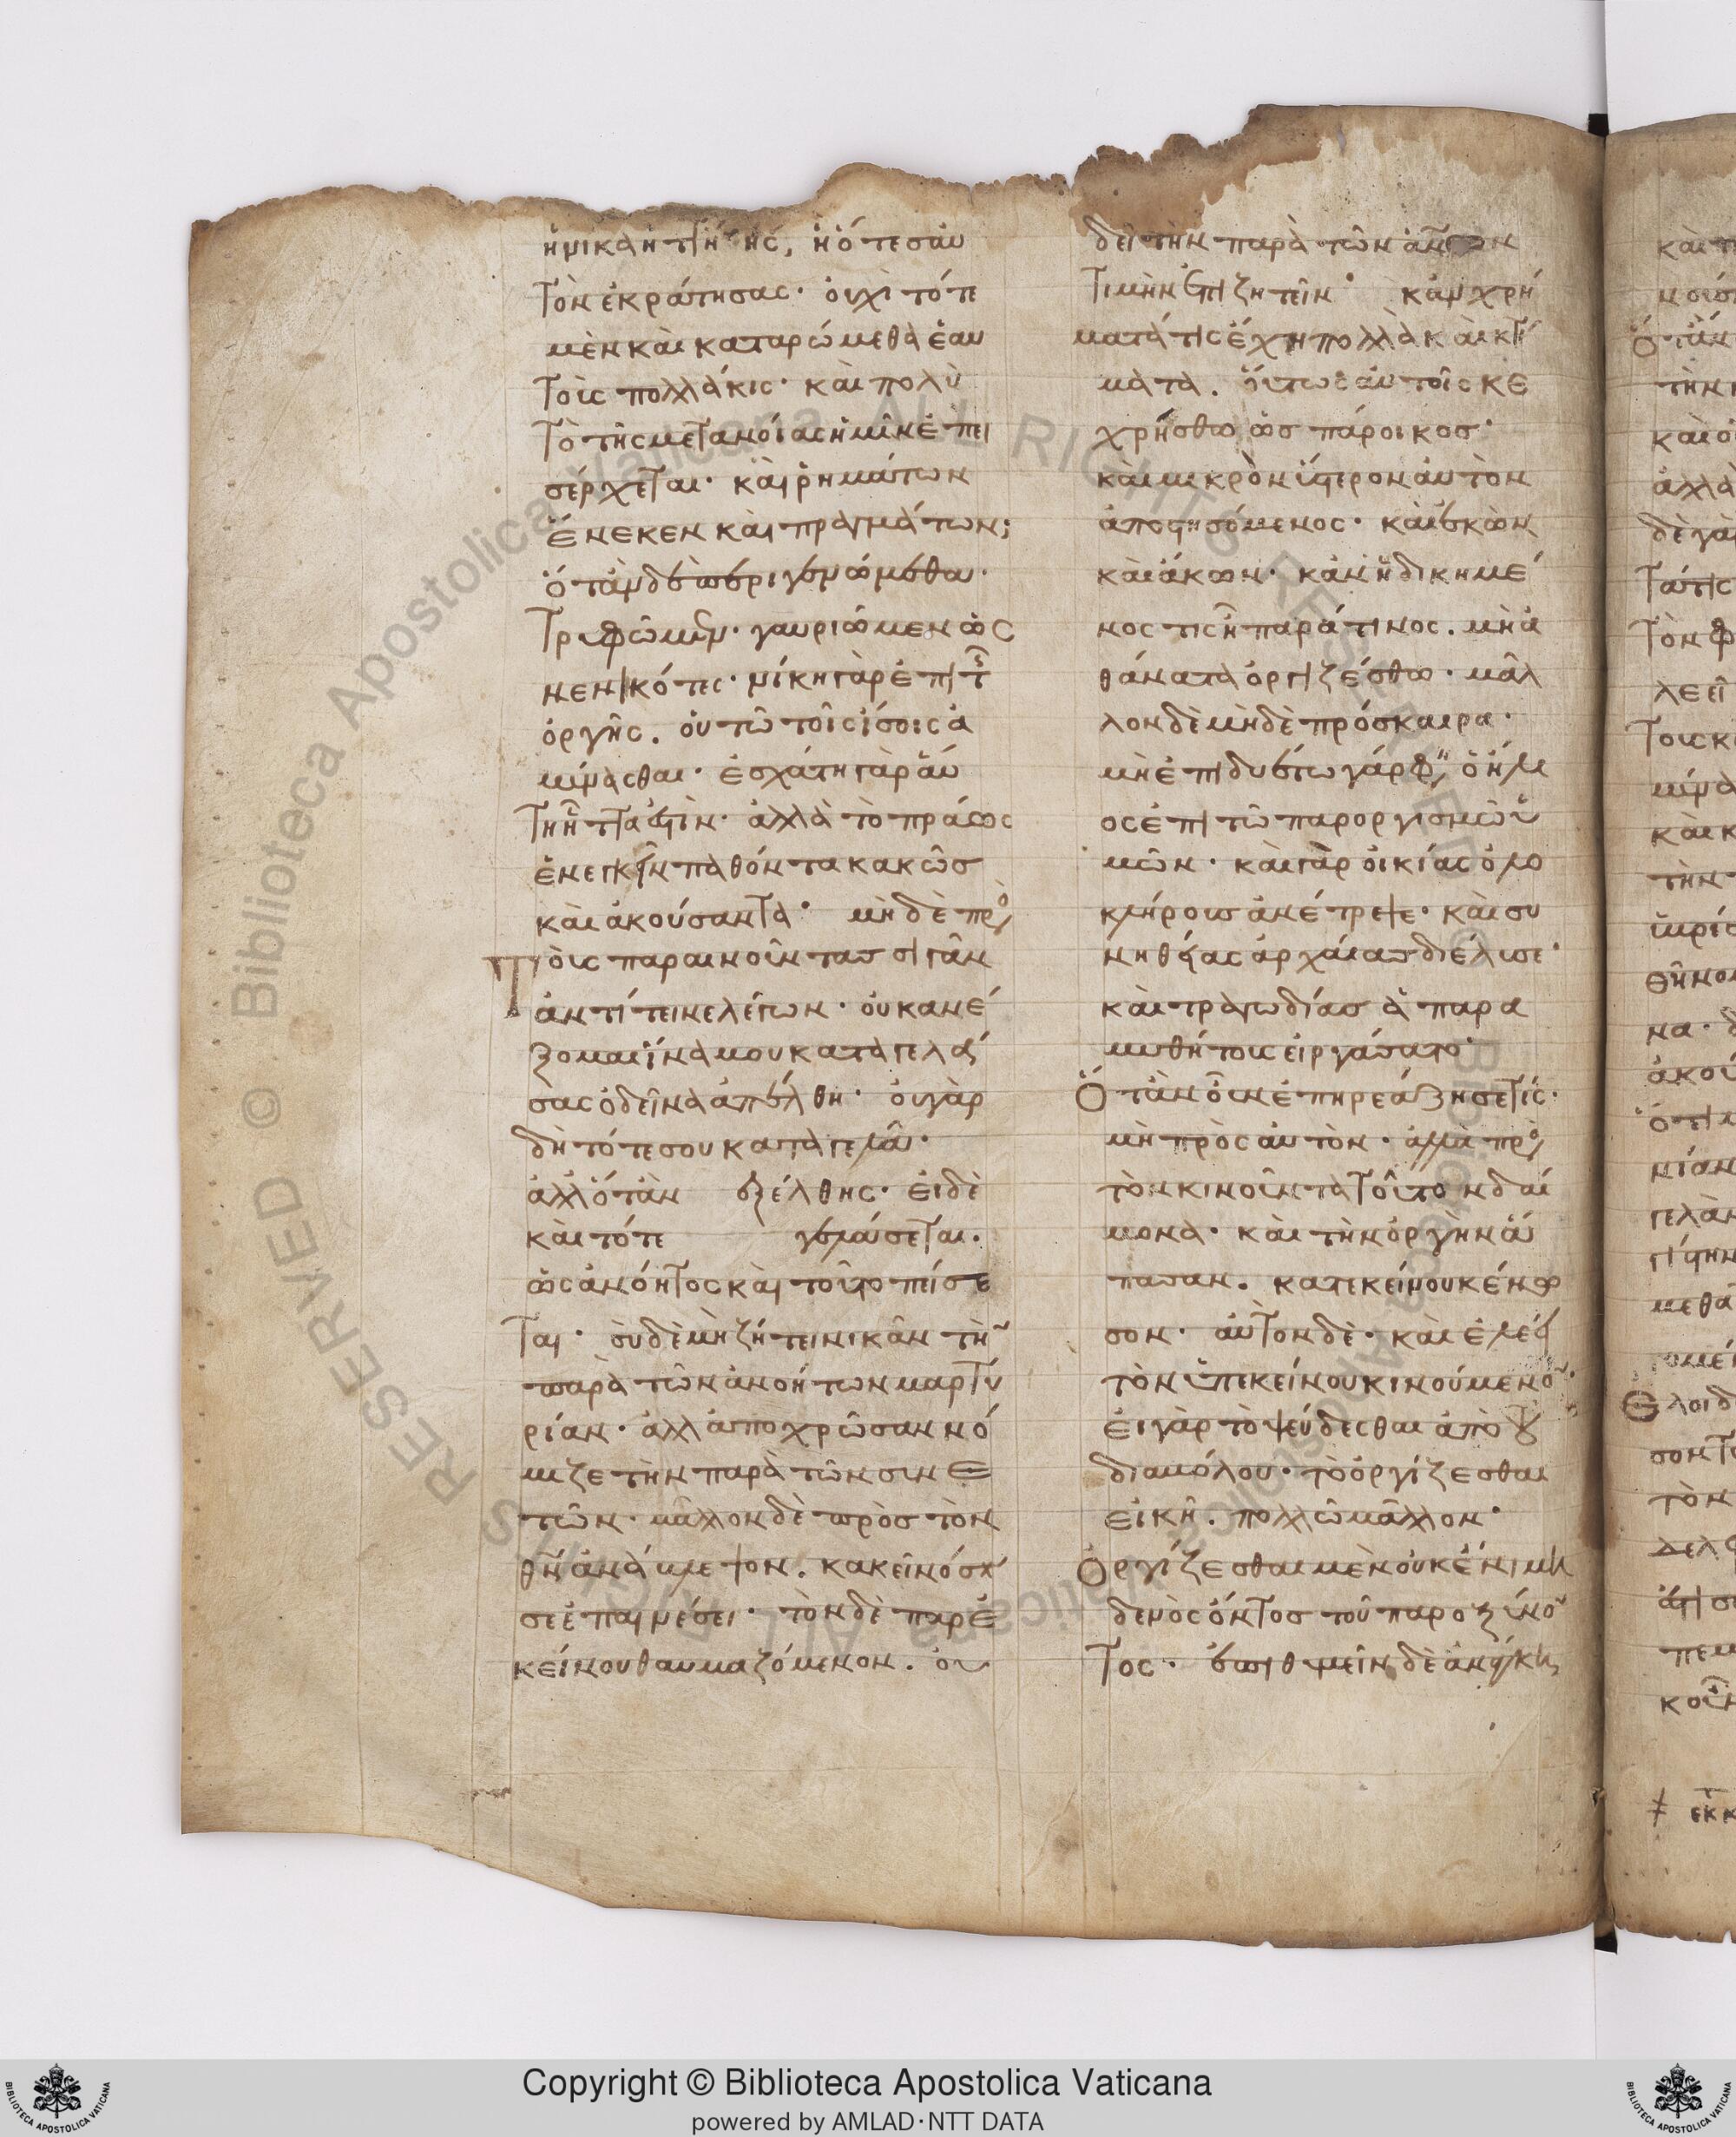 ἡνίκα ἡττήθης, ἢ ὅτε σαυ
τὸν ἐκράτησας· οὐχὶ τότε
μὲν καὶ καταρώμεθα ἑαυ
τοῖς πολλάκις· καὶ πολὺ
τὸ τῆς μετανοίας ἡμῖν ἐπει
σέρχεται· καὶ ῥημάτων
ἕνεκεν καὶ πραγμάτων;
ὅταν δὲ περιγενώμεθα·
τρυφῶμεν· γαυριῶμεν ὡς
νενικότες· νίκη γὰρ ἐπὶ τ
ὀργῆς. οὐ τῶ τοῖς ἴσοις ἀ
μύνασθαι· ἐσχάτη γὰρ αὕ
τη ἧττα ἐστὶν· ἀλλὰ τὸ πράως
ἐνεγκεῖν παθόντα κακῶς
καὶ ἀκούσαντα· μὴ δὲ πρὸ
τοὺς παραινοῦντας σιγᾶν
ἀντίτεινε λέγων· οὐκ ἀνέ
ξομαι ἵνα μου καταγελά
σας ὁ δεῖνα ἀπέλθη· οὐ γὰρ
δὴ τότε σου καταγελᾶ·
ἀλλ ὅταν ἐπεξέλθης· εἰ δὲ
καὶ τότε γελάσεται·
ὡς ἀνόητος καὶ τοῦτο πείσε
ται· σὺ δὲ μὴ ζήτει νικᾶν τὴ
παρὰ τῶν ἀνοήτων μαρτυ
ρίαν· ἀλλ ἀποχρῶσαν νό
μιζε τὴν παρὰ τῶν συνε
τῶν· μᾶλλον δὲ πρὸς τὸν
θν ἀνάβλεψον. κἀκεῖνός
σε ἐπαινέσει· τὸν δὲ παρ ἐ
κείνου θαυμαζόμενον. οὐ
δεῖ τὴν παρὰ τῶν ἀνων
τιμὴν ἐπιζητεῖν· κἂν χρή
ματά τις ἔχη πολλὰ καὶ κτή
ματα. οὕτως αὐτοῖς κε
χρήσθω ὡς πάροικος·
καὶ μικρὸν ὕστερον αὐτῶν
ἀποστησόμενος· καὶ ἑκὼν
καὶ ἄκων· κἂν ἠδικημέ
νος τις ἦ παρά τινος. μὴ ἀ
θάνατα ὀργιζέσθω· μᾶλ
λον δὲ μὴ δὲ πρόσκαιρα·
μὴ ἐπιδυέτω γάρ φη, ὁ ἥλι
ος ἐπὶ τῶ παροργισμῶ ὑ
μῶν· καὶ γὰρ οἰκίας ὁλο
κλήρους ἀνέτρεψε· καὶ συ
νηθείας ἀρχαίας διέλυσε·
καὶ τραγωδίας ἀπαρα
μυθήτους εἰργάσατο·
Ὅταν οὖν ἐπηρεάζησέ τις·
μὴ πρὸς αὐτὸν· ἀλλὰ πρὸ
τὸν κινοῦντα τοῦτον δαί
μονα· καὶ τὴν ὀργὴν ἅ
πασαν. κατ ἐκείνου κένω
σον· αὐτὸν δὲ· καὶ ἐλέει
τὸν ὑπ ἐκείνου κινούμενο·
εἰ γὰρ τὸ ψεύδεσθαι ἀπὸ του
διαβόλου· τὸ ὀργίζεσθαι
εἰκῆ. πολλῶ μᾶλλον·
Ὀργίζεσθαι μὲν οὐκ ἔνι μη
δενὸς ὄντος τοῦ παροξύνο
τος· ἐπιθυμεῖν δὲ ἀνάγκη